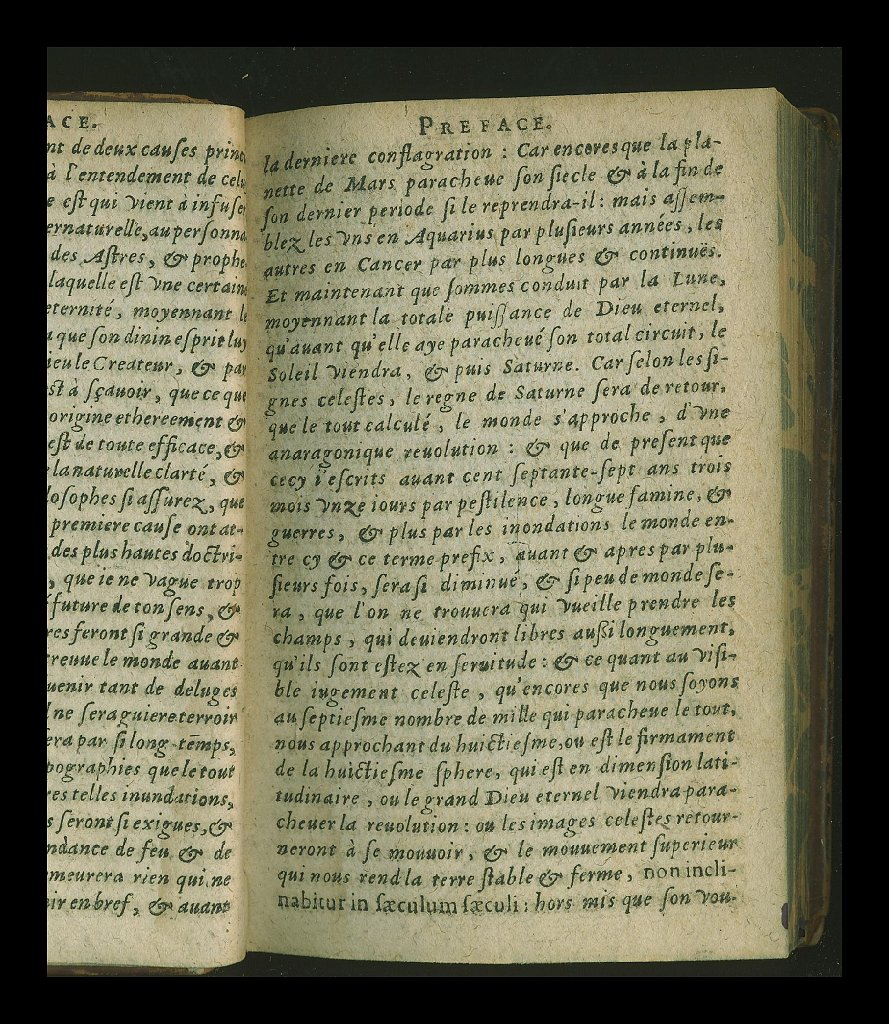 ACE.
nt de deux causes princ
à l'entendement de celu
e est qui vient à infuse
ernaturelle, au personna
des Astres, & prophe
laquelle est vne certain
eternité, moyennant l
que son diuin esprit luy
ieu le Createur, & par
st à sçauoir, que ce que
origine ethereement &
est de toute efficace, &
la naturelle clarté, &
losophes si assurez, que
premiere cause ont at-
des plus hautes doctri-
, que ie ne vague trop
future de ton sens, &
res feront si grande &
reuue le monde auant
uenir tant de deluges
ne sera guiere terroir
era par si long temps,
pographies que le tout
res telles inundations,
s seront si exigues, &
ndance de feu & de
meurera rien qui ne
ir en bref, & auant
PREFACE.
la derniere conflagration : Car encores que la pla-
nette de Mars paracheue son siecle & à la fin de
son dernier periode si le reprendra-il : mais assem-
blez les vns en Aquarius par plusieurs années, les
autres en Cancer par plus longues & continuës.
Et maintenant que sommes conduit par la Lune,
moyennant la totale puissance de Dieu eternel,
qu'auant qu'elle aye paracheué son total circuit, le
Soleil viendra, & puis Saturne. Car selon les si-
gnes celestes, le regne de Saturne sera de retour,
que le tout calculé, le monde s'approche, d'vne
anaragonique reuolution : & que de present que
cecy i'escrits auant cent septante-sept ans trois
mois vnze iours par pestilence, longue famine, &
guerres, & plus par les inondations le monde en-
tre cy & ce terme prefix, auant & apres par plu-
sieurs fois, sera si diminué, & si peu de monde se-
ra, que l'on ne trouuera qui vueille prendre les
champs, qui deuiendront libres aussi longuement,
qu'ils sont estez en seruitude : & ce quant au visi-
ble iugement celeste, qu'encores que nous soyons
au septiesme nombre de mille qui paracheue le tout,
nous approchant du huictiesme, ou est le firmament
de la huictiesme sphere, qui est en dimension lati-
tudinaire, ou le grand Dieu eternel viendra para-
cheuer la reuolution : ou les images celestes retour-
neront à se mouuoir, & le mouuement superieur
qui nous rend la terre stable & ferme, non incli-
nabitur in sæculum sæculi : hors mis que son vou-